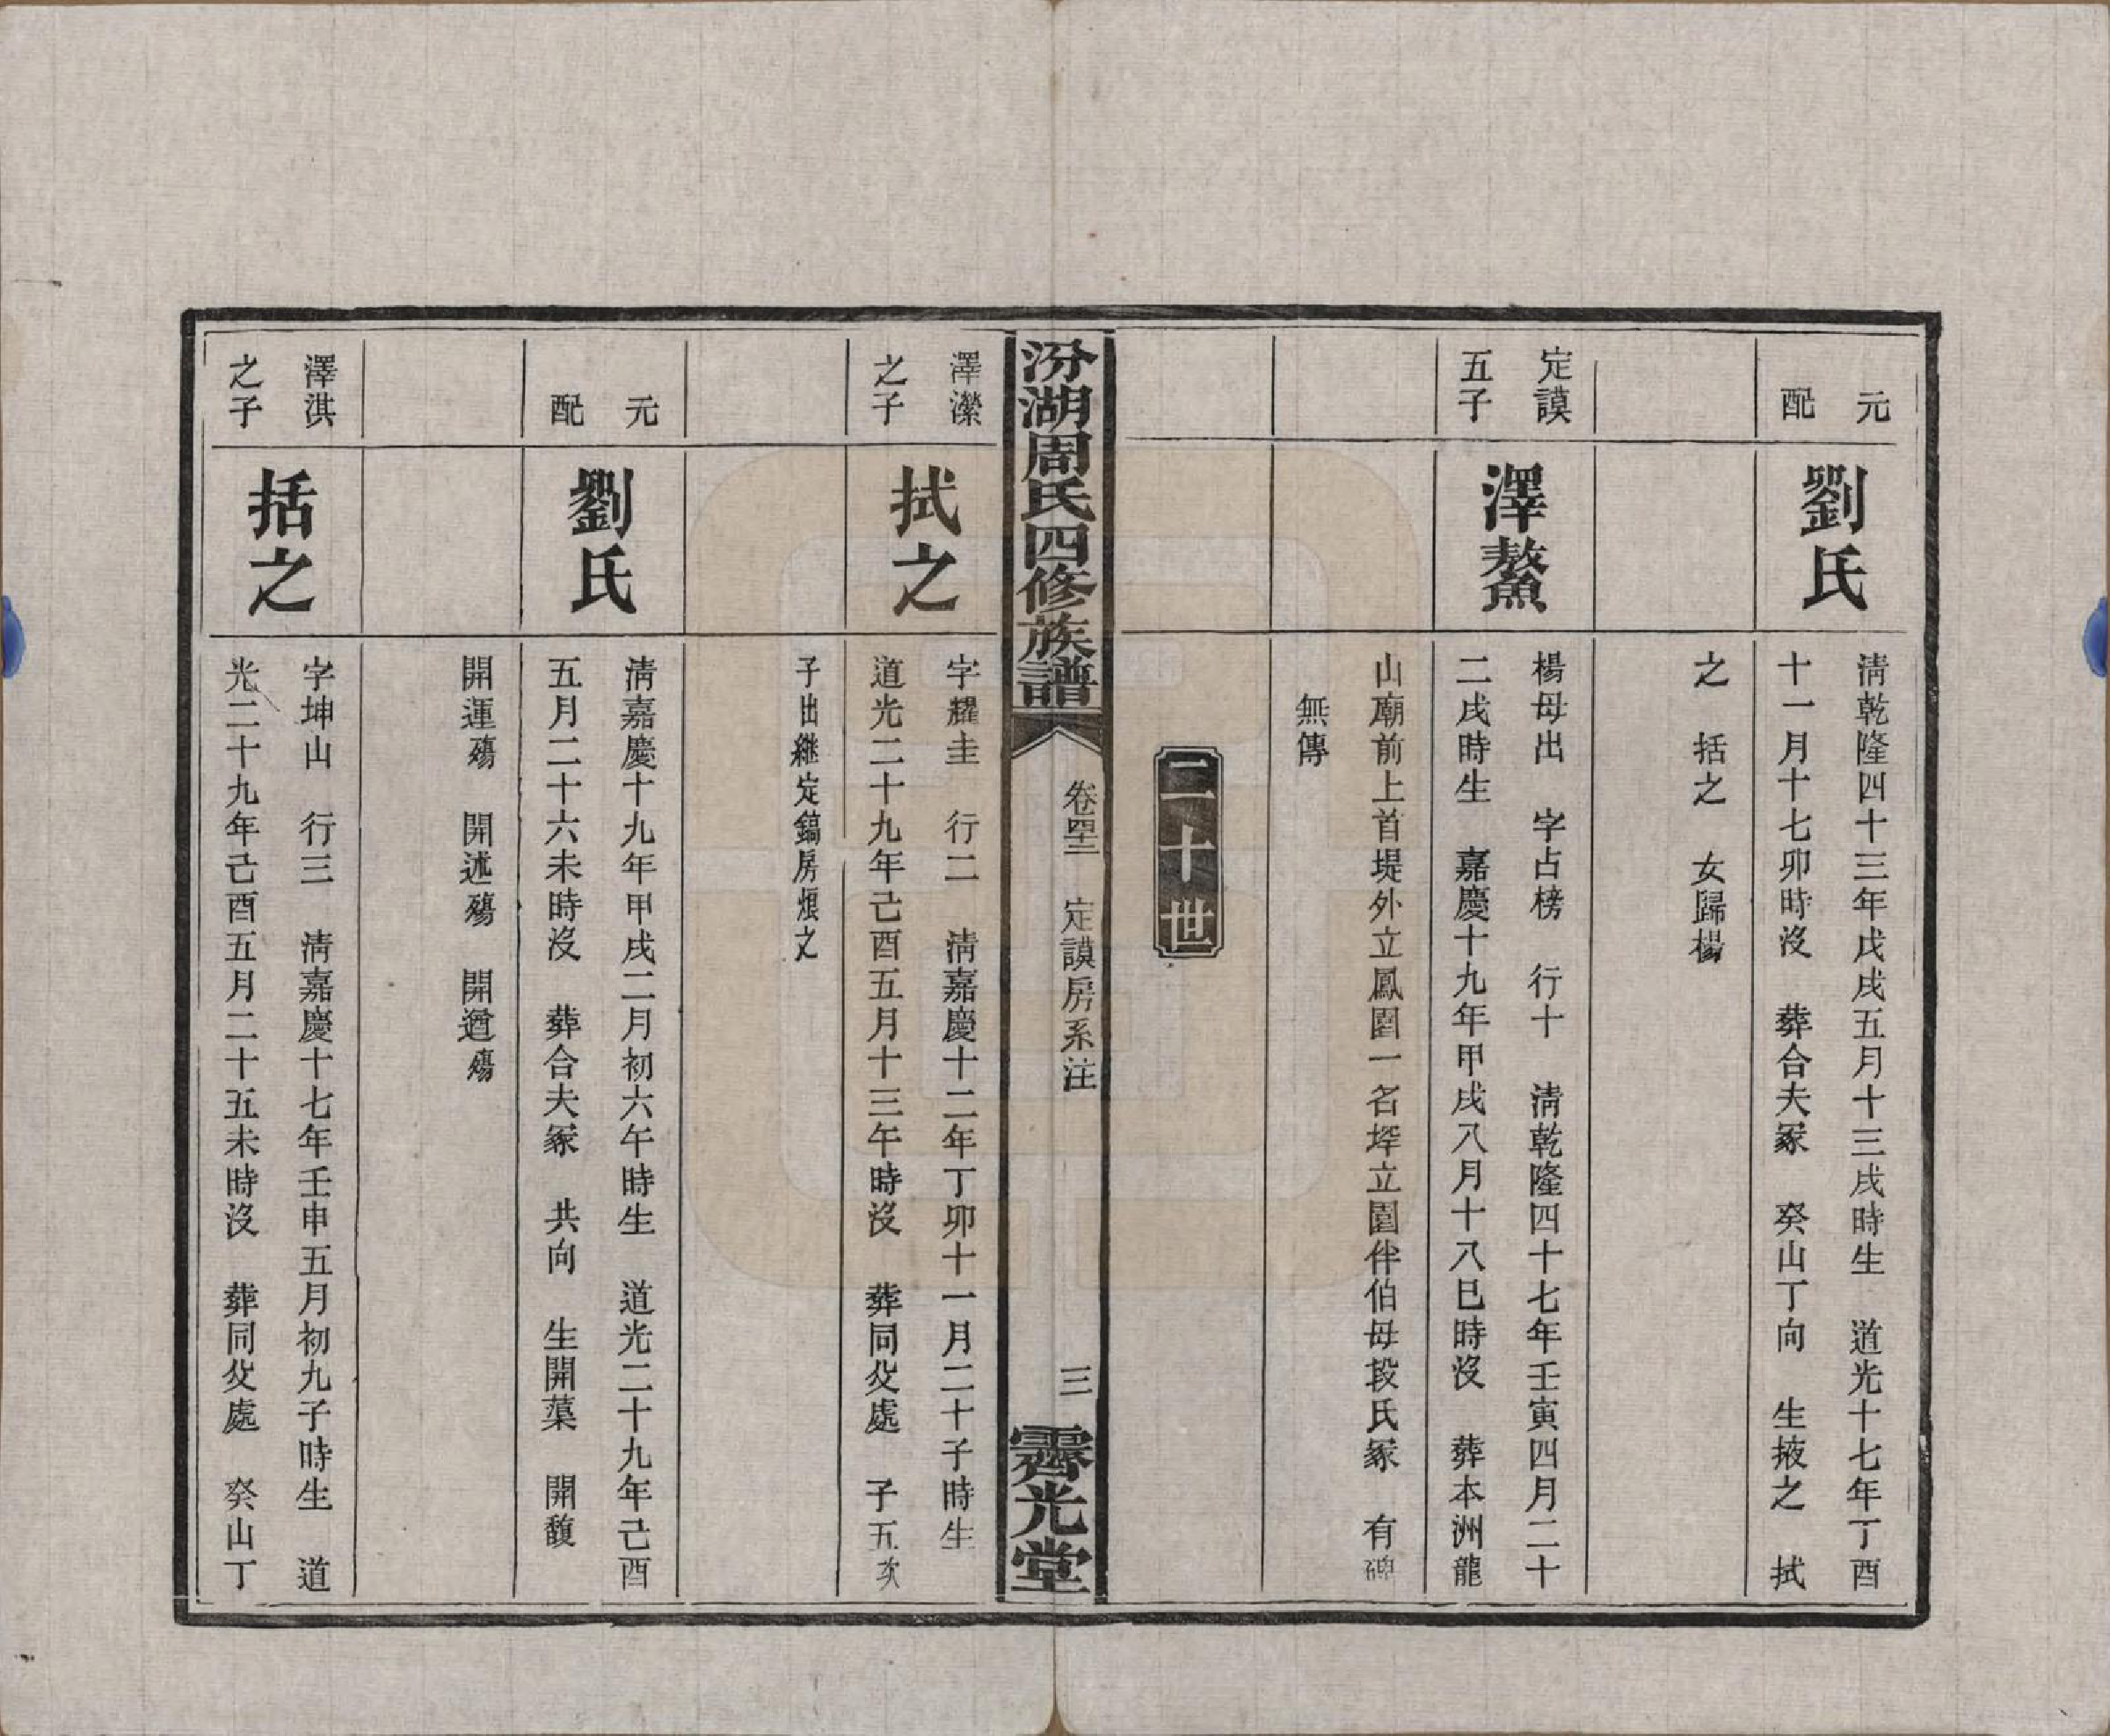 元配
劉氏
淸乾隆四十三年戊戌五月十三戌時生　道光十七年丁酉
十一月十七卯時沒　葬合夫冢　癸山丁向　生掖之　拭
之　括之　女歸楊
定謨
五子
澤鰲
楊母出　字占榜　行十　淸乾隆四十七年壬寅四月二十
二戌時生　嘉慶十九年甲戌八月十八巳時沒　葬本洲龍
山廟前上首堤外立鳳園一名垾立園伴伯母段氏冢　有碑
無傳
二十世
汾湖周氏四修族譜
卷四十二　定謨房系注
三
霽光堂
澤濴
之子
拭之
字耀圭　行二　淸嘉慶十二年丁卯十一月二十子時生
道光二十九年己酉五月十三午時沒　葬同父處　子五次
子出継定鎬房煨之
元配
劉氏
淸嘉慶十九年甲戌二月初六午時生　道光二十九年己酉
五月二十六未時沒　葬合夫冢　共向　生開蕖　開馥
開運殤　開述殤　開遒殤
澤淇
之子
括之
字坤山　行三　淸嘉慶十七年壬申五月初九子時生　道
光二十九年己酉五月二十五未時沒　葬同父處　癸山丁